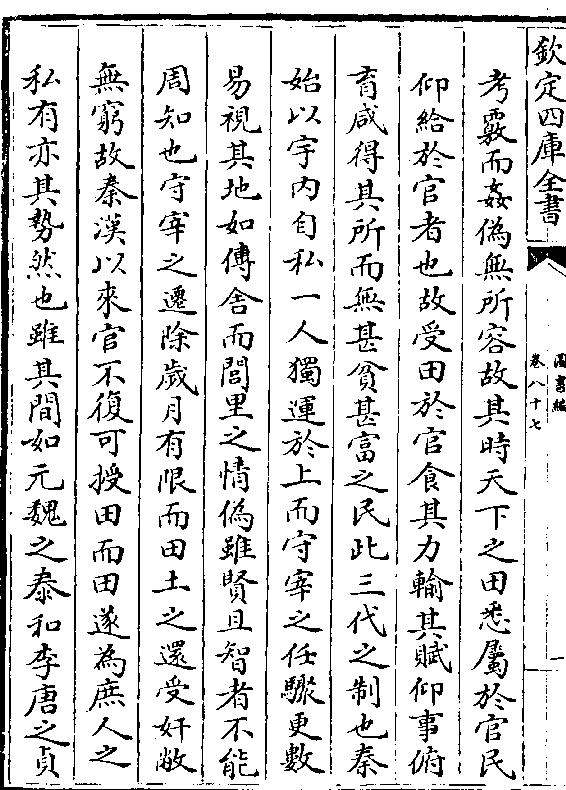 欽定四庫全書
圖書編
卷八十七
考覈而姦偽無所容故其時天下之田悉屬於官民
仰給於官者也故受田於官食其力輸其賦仰事俯
育咸得其所而無甚貧甚富之民此三代之制也秦
始以宇内自私一人獨運於上而守宰之任驟更數
易視其地如傳舍而閭里之情偽雖賢且智者不能
周知也守宰之遷除歲月有限而田土之還受奸敝
無窮故秦漢以來官不復可授田而田遂為庶人之
私有亦其勢然也雖其間如元魏之泰和李唐之貞